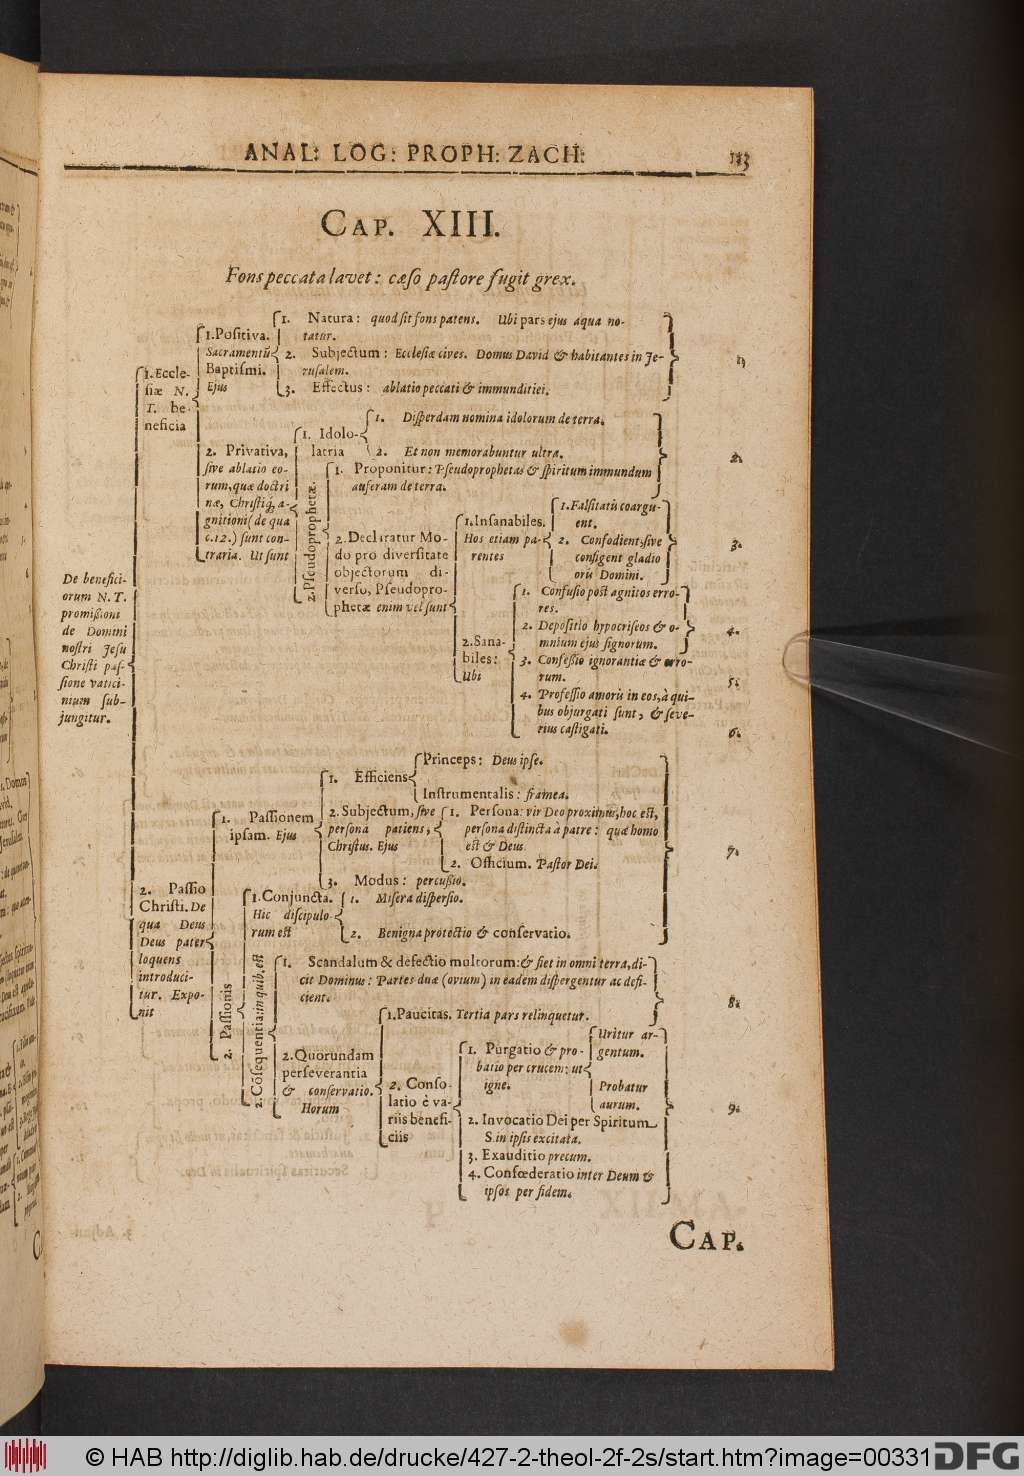 ANAL: LOG: PROPH: ZACH: 183
CAP. XIII.
Fons peccata lavet: cæso pastore fugit grex.
De benefici-
orum N. T.
promissioni
de Domini
nostri Jesu
Christi pas-
sione vatici-
nium sub-
jungitur.
1. Eccle-
siæ N.
T. be-
neficia
1. Positiva.
Sacramentũ
Baptismi.
Ejus
1. Natura: quod sit fons patens. Ubi pars ejus aqua no-
tatur.
2. Subjectum: Ecclesiæ cives. Domus David & habitantes in Je-
rusalem.
3. Effectus: ablatio peccati & immunditiei.
1.
2. Privativa,
sive ablatio eo-
rum, quæ doctri
næ, Christiq, a-
gnitioni (de qua
c. 12.) sunt con-
traria. Ut sunt
1. Idolo-
latria
1. Disperdam nomina idolorum de terra.
2. Et non memorabuntur ultra.
2. Pseudoprophetæ.
1. Proponitur: Pseudoprophetas & spiritum immundum
auferam de terra.
2.
2. Declaratur Mo-
do pro diversitate
objectorum di-
verso, Pseudopro-
phetæ enim vel sunt
1. Insanabiles.
Hos etiam pa-
rentes
1. Falsitatis coargu-
ent.
2. Confodient, sive
configent gladio
oris Domini.
3.
2. Sana-
biles:
Ubi
1. Confusio post agnitos erro-
res.
2. Depositio hypocriseos & o-
mnium ejus signorum.
4.
3. Confessio ignorantiæ & erro-
rum.
5.
4. Professio amoris in eos, à qui-
bus objurgati sunt, & seve-
rius castigati.
6.
2. Passio
Christi. De
qua Deus
Deus pater
loquens
introduci-
tur. Expo-
nit
1. Passionem
ipsam. Ejus
1. Efficiens
Princeps: Deus ipse.
Instrumentalis: framea.
2. Subjectum, sive
persona patiens,
Christus. Ejus
1. Persona: vir Deo proximus, hoc est,
persona distincta à patre: quæ homo
est & Deus
2. Officium. Pastor Dei.
3. Modus: percussio.
7.
2. Passionis
1. Conjuncta.
Hic discipulo-
rum est
1. Misera dispersio.
2. Benigna protectio & conservatio.
2. Cõsequentia: in quib. est
1. Scandalum & defectio multorum: & fiet in omni terra, di-
cit Dominus: Partes duæ (ovium) in eadem dispergentur ac defi-
cient.
8.
2. Quorundam
perseverantia
& conservatio.
Horum
1. Paucitas. Tertia pars relinquetur.
2. Conso-
latio è va-
riis benefi-
ciis
1. Purgatio & pro-
batio per crucem: ut
igne.
Uritur ar-
gentum.
Probatur
aurum.
2. Invocatio Dei per Spiritum
S. in ipsis excitata.
3. Exauditio precum.
4. Confœderatio inter Deum &
ipsos per fidem.
9.
CAP.
© HAB http://diglib.hab.de/drucke/427-2-theol-2f-2s/start.htm?image=00331
DFG